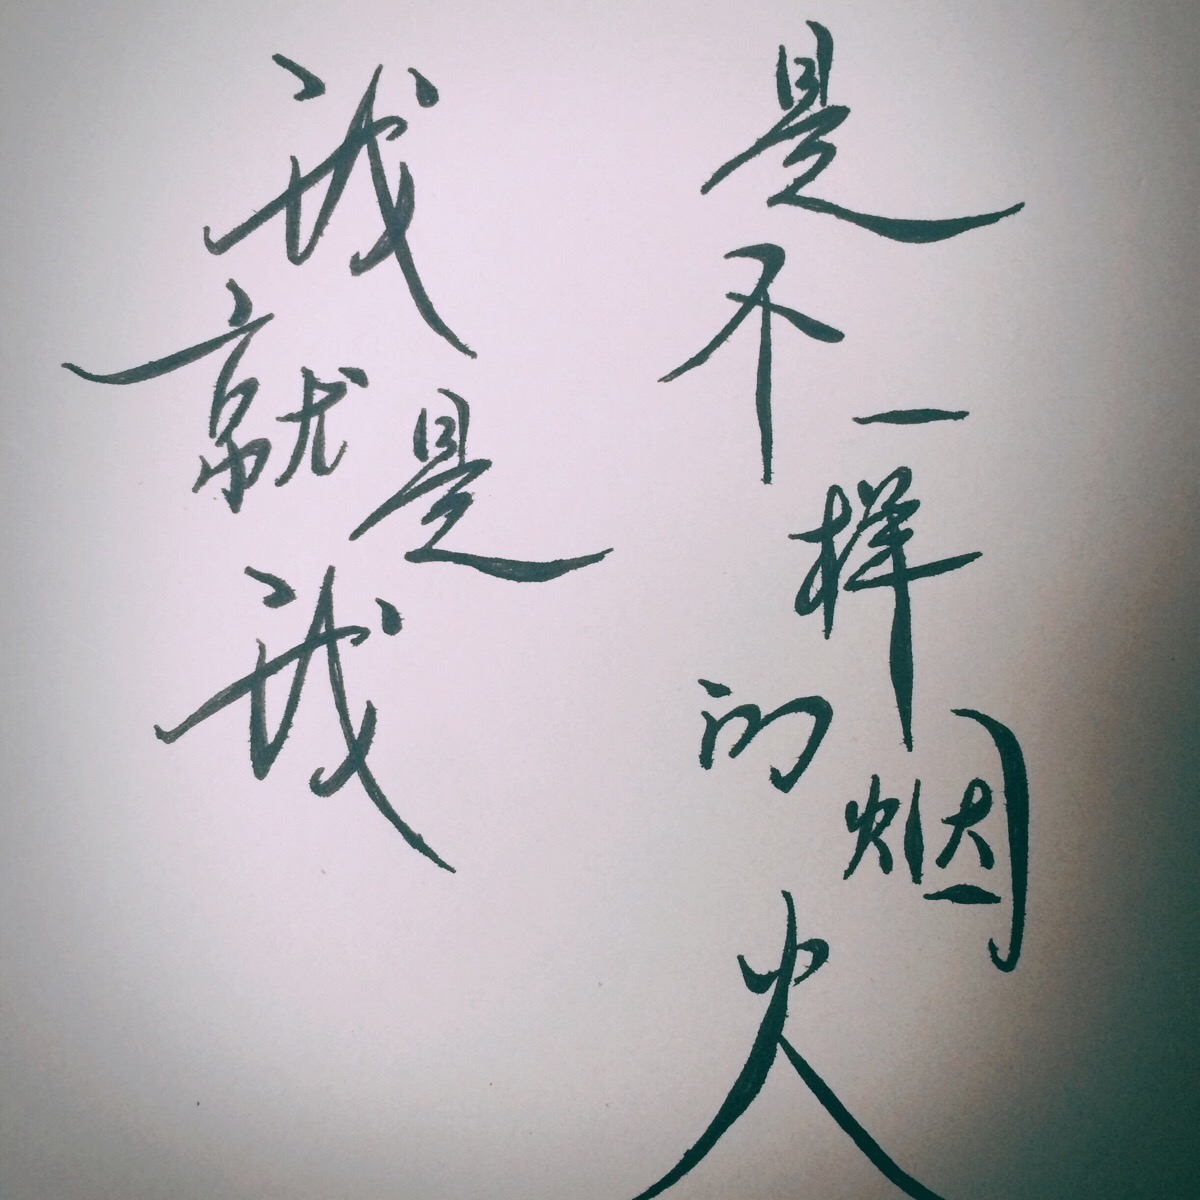 我就是我
是不一样的烟火